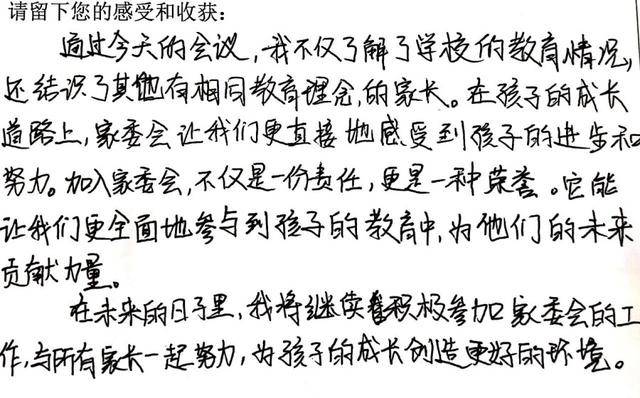 请留下您的感受和收获:
通过今天的会议,我不仅了解了学校的教育情况,
还结识了其他有相同教育理念,的家长。在孩子的成长
道路上,家委会让我们更直接地感受到孩子的进步和
努力。加入家委会,不仅是一份责任,更是一种荣誉。它能
让我们更全面地参与到孩子的教育中,为他们的未来
贡献力量。
在未来的日子里,我将继续积极参加家委会的工
作,与所有家长一起努力,为孩子的成长创造更好的环境。